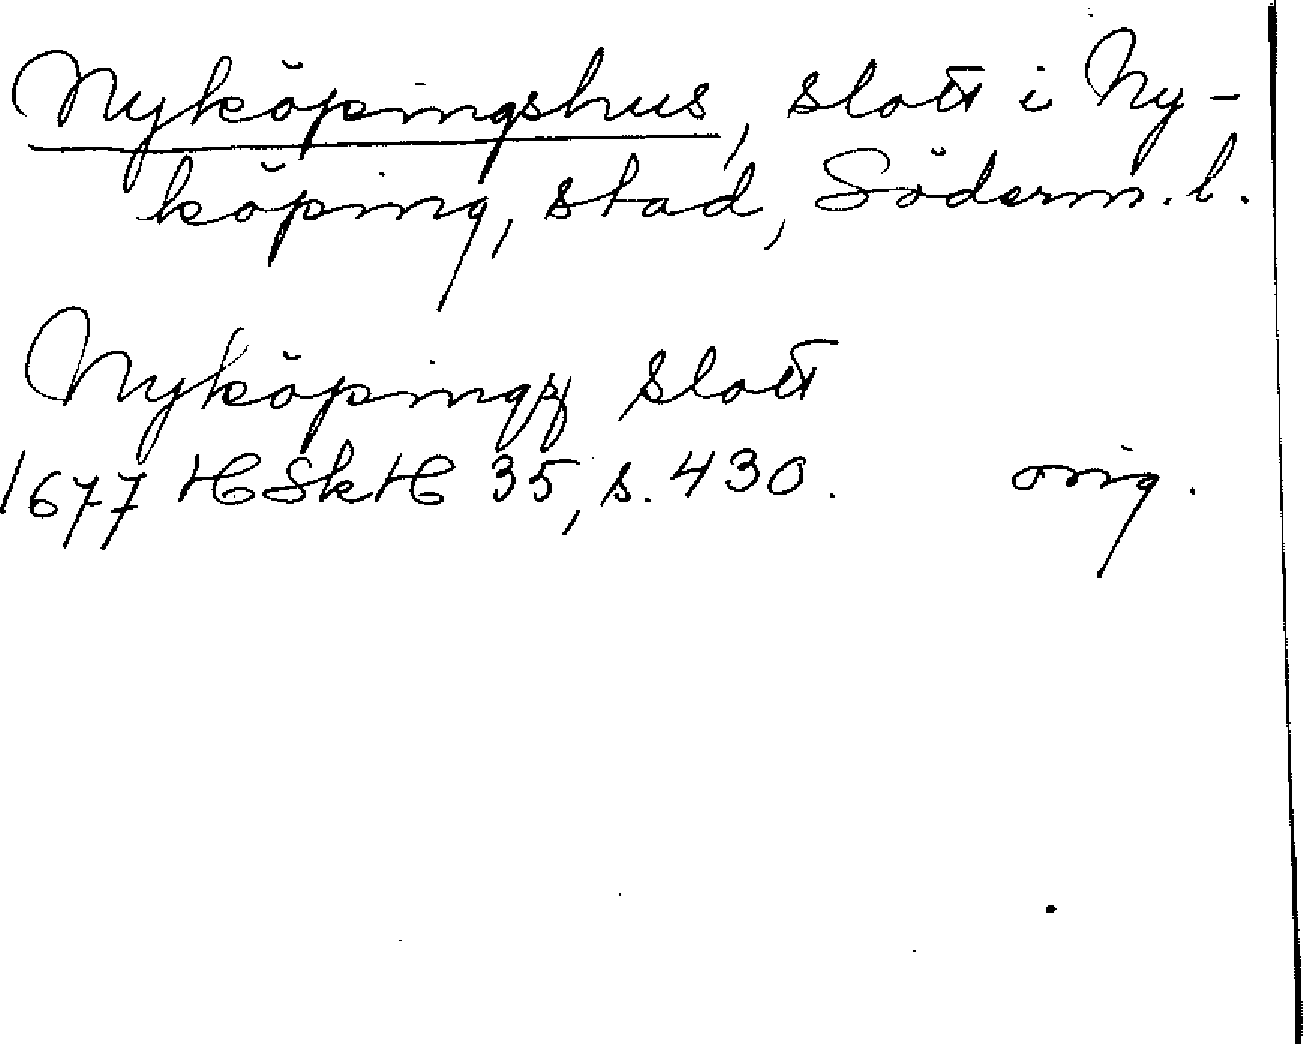 Nyköpingshus, slott i Ny-
köping, stad, Söderm. l.
Nyköpingz slott
1677 HSkH 35, s. 430. orig.